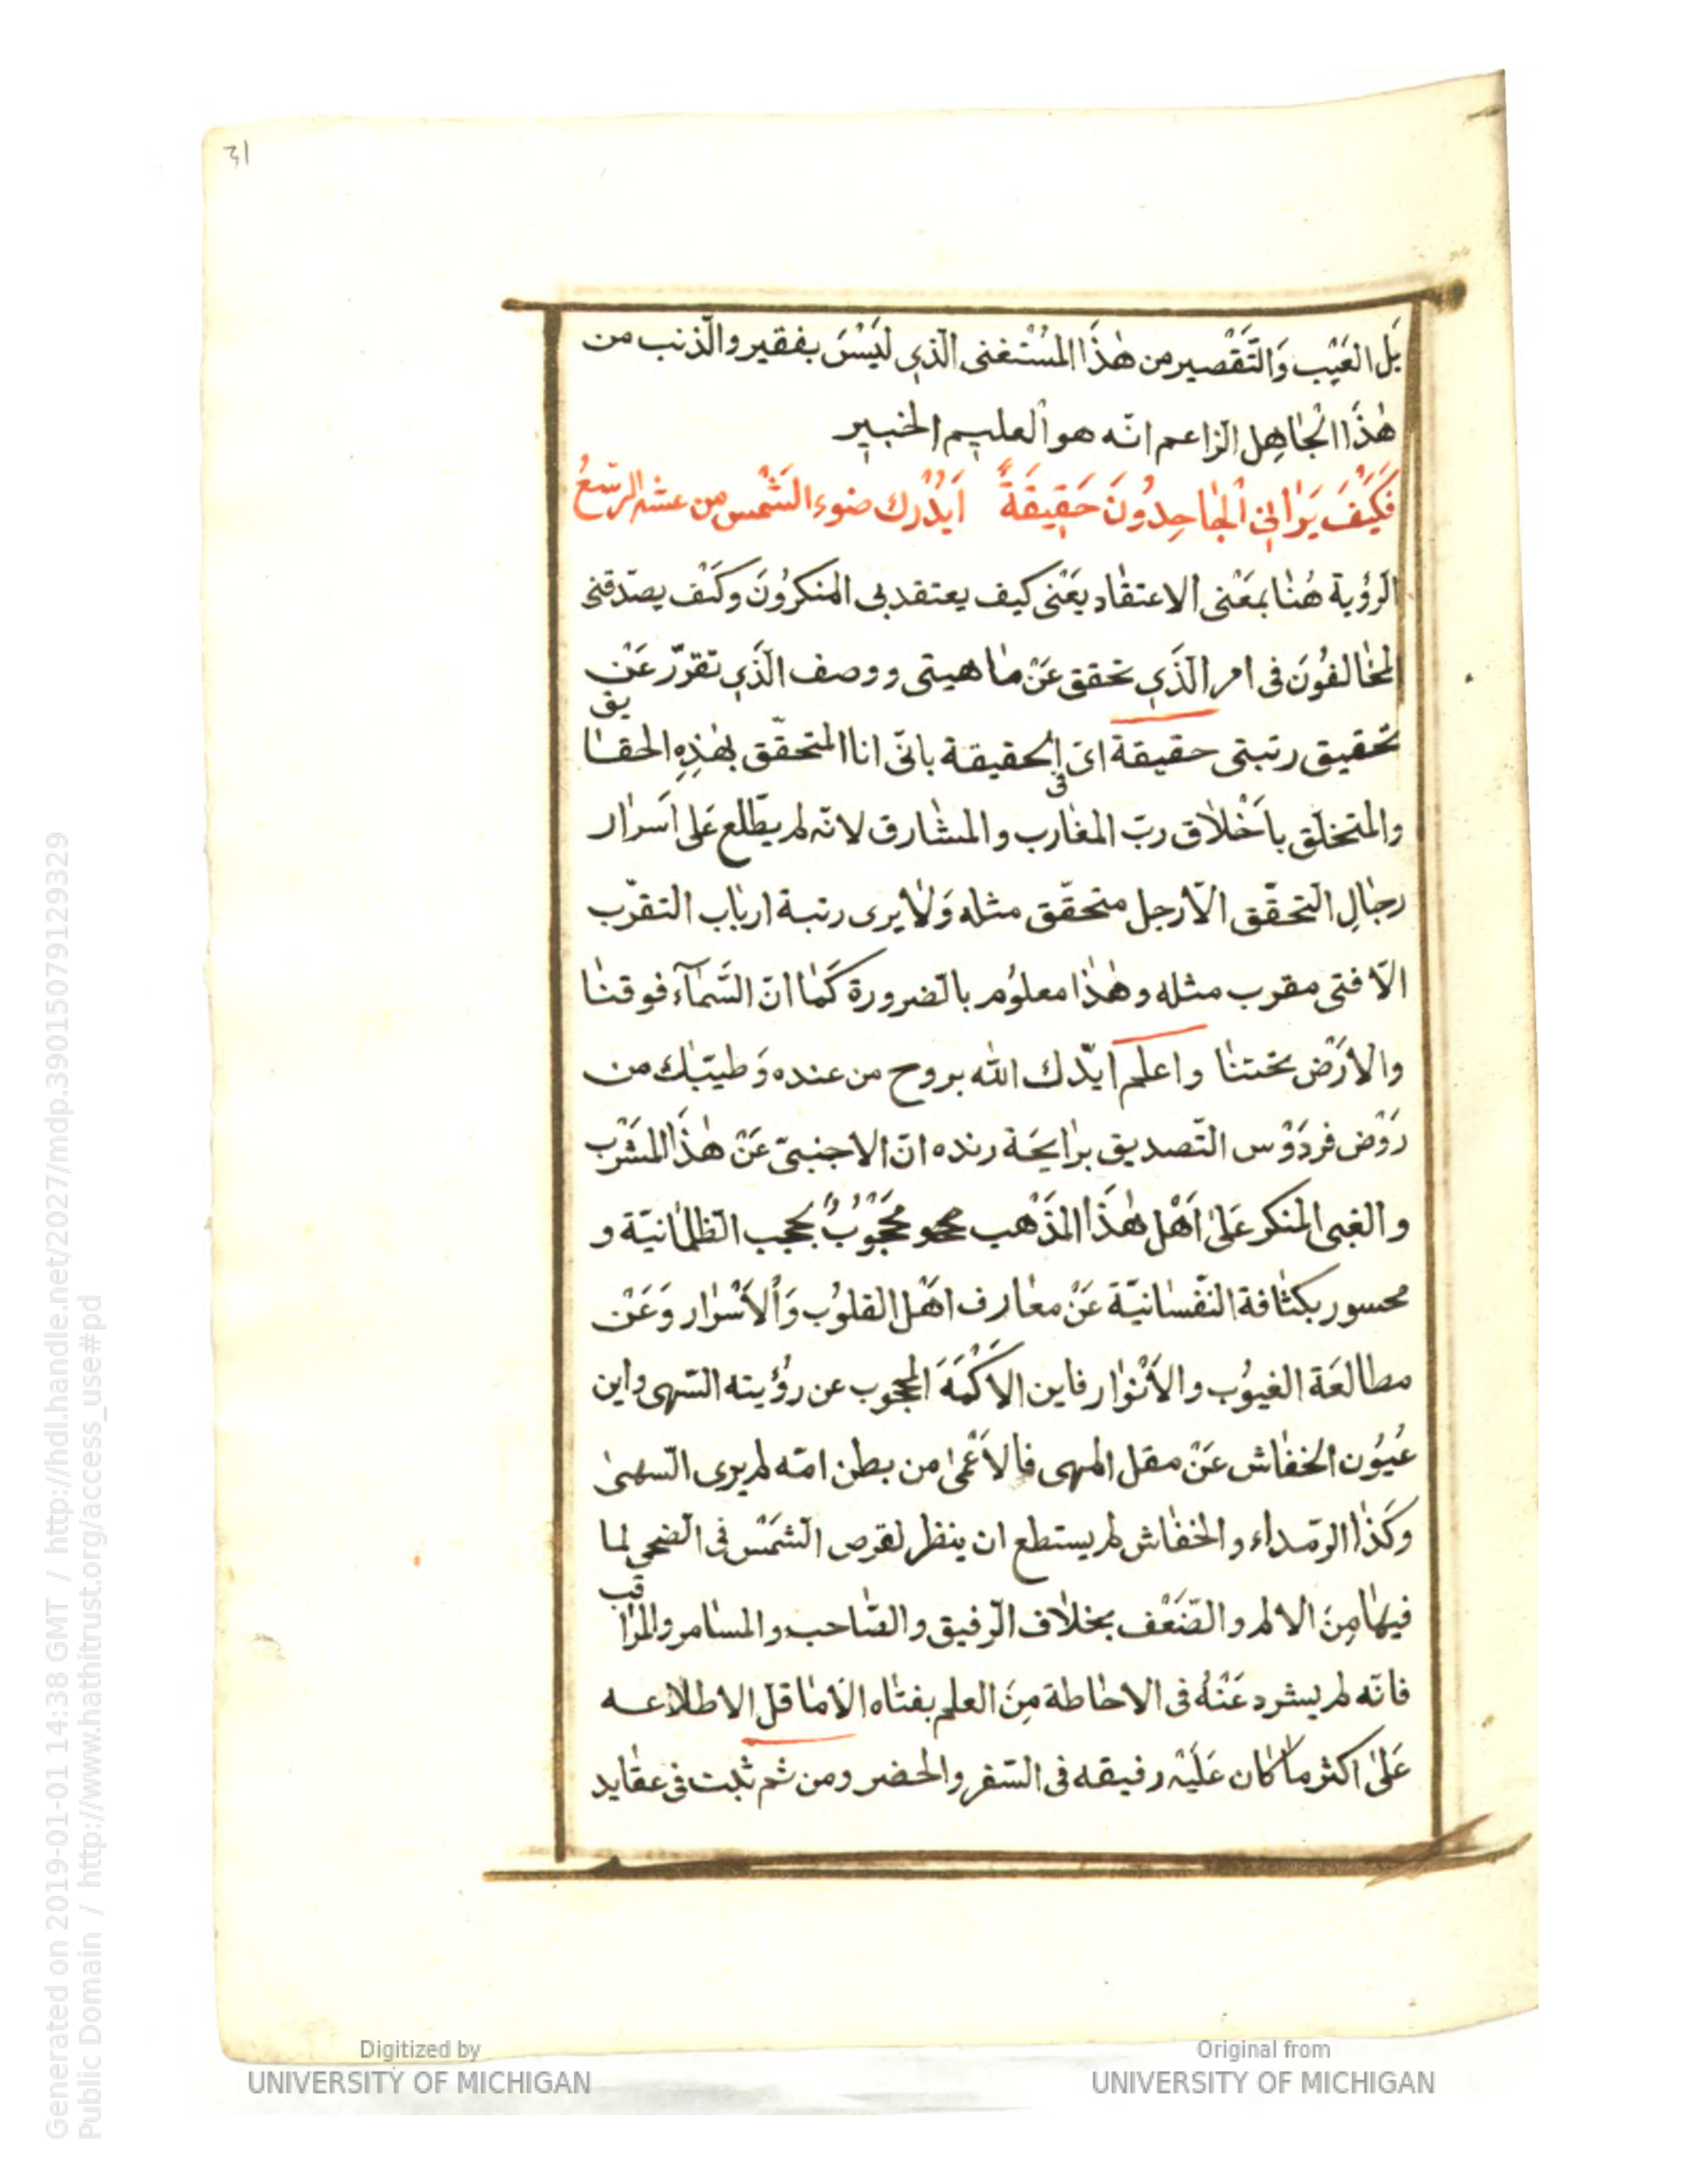 31
بَل العَيْب وَالتَّقْصير من هٰذَا المُسْتَغنى الّذي لَيْسَ بفقير والّذنب من
هٰذَا الْجاهِل الزاعم انّه هو العليم الخبير
فَكَيْفَ يَرَانِي الْجَاحِدُونَ حَقِيقَةً اَيُدْرك ضوء الشَّمْس من
الرؤية هُنَا بمَعْنى الاعتقاد يَعْنى كيف يعتقد بى المنكرُونَ وكَيْف يصدّقنى
المخَالفُونَ فى امر الّذَي تحقق عَنْ ماهيتى ووصف الّذَي تقرّر عَنْ
تحقيق رتبتى حقيقة اى فى الحقيقة بانّى انا المتحقّق بهٰذِهِ الحقايق
والمتخلّق باَخْلاق ربّ المغارب والمشارق لانّه لم يطّلع عَلى اَسرار
رجَالِ التحقّق الّا رجل متحقّق مثله وَلَا يرى رتبة ارباب التقرّب
الّا فتى مقرب مثله وهٰذا معلوُم بالضرورة كَمَا انّ السَّمَآء فوقنَا
والاَرْض تحتنَا واعلم ايّدك الله بروح من عنده وَطيّبك من
رَوْض فردَوْس التّصديق برايحَة رنده انّ الاجنبىّ عَنْ هٰذَا المشَرْب
والغبى المنكر عَلىٰ اَهْل هٰذَا المَذْهب محجُوْبٌ بحجب الظلمانيّة و
محسور بكثافة النّفسانيّة عَنْ معارف اهْل القلوُب وَالْاَسْرار وَعَنْ
مطالعَة الغيوُب والاَنْوار فاين الاَكْمَهَ المحجوب عن رؤيته السّهى واين
عُيوُن الخفاش عَنْ مقل المهى فالاَعْمىٰ من بطن امّه لم يرى السّهىٰ
وكَذا الرّمداء والخفاش لم يستطع ان ينظر لقرص الشمَسْ فى الضحى لما
فيهَا مِنَ الالم والضّعْف بخلاف الرّفيق والصّاحب والمسامر والمراقب
فانّه لم يشرد عَنْهُ فى الاحاطة مِنَ العلم بفتاه الّا ما قلّ الاطلاعه
عَلىٰ اكثر ما كَان عَلَيْه رفيقه فى السّفر والحضر ومن ثم ثبت فى عقايد
Generated on 2019-01-01 14:38 GMT / http://hdl.handle.net/2027/mdp.39015079129329
Public Domain / http://www.hathitrust.org/access_use#pd
Digitized by
UNIVERSITY OF MICHIGAN
Original from
UNIVERSITY OF MICHIGAN